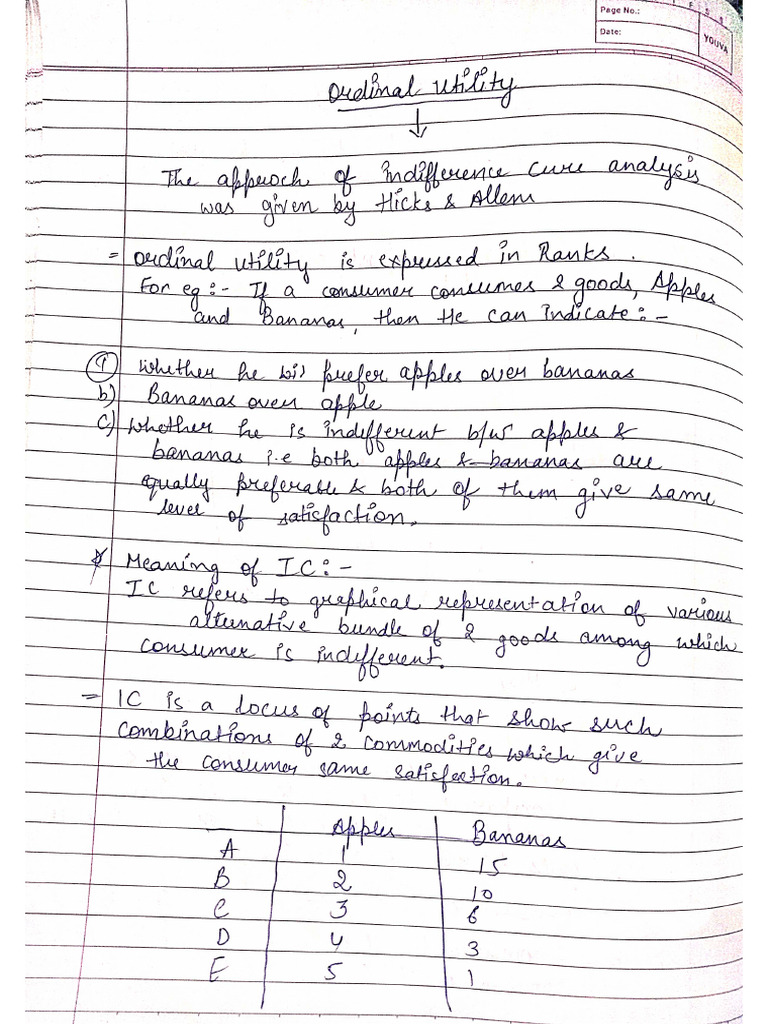 Page No.:
Date:
YOUVA
Ordinal Utility
↓
The approch of indifference cure analysis
was given by Hicks & Allem
= Ordinal Utility is expressed in Ranks.
For eg :- If a consumer consumes 2 goods, Apples
and Bananas, then He can indicate :-
a) Whether he prefer apples over bananas
b) Bananas over apple
c) Whether he is indefferent b/w apples &
bananas i.e both apples & bananas are
equally preferable & both of them give same
level of satisfaction.
* Meaning of IC :-
IC refers to graphical representation of various
alternative bundle of 2 goods among which
consumer is indifferent.
= IC is a locus of points that show such
combinations of 2 commodities which give
the consumer same satisfection.
Apples Bananas
A 1 15
B 2 10
C 3 6
D 4 3
E 5 1